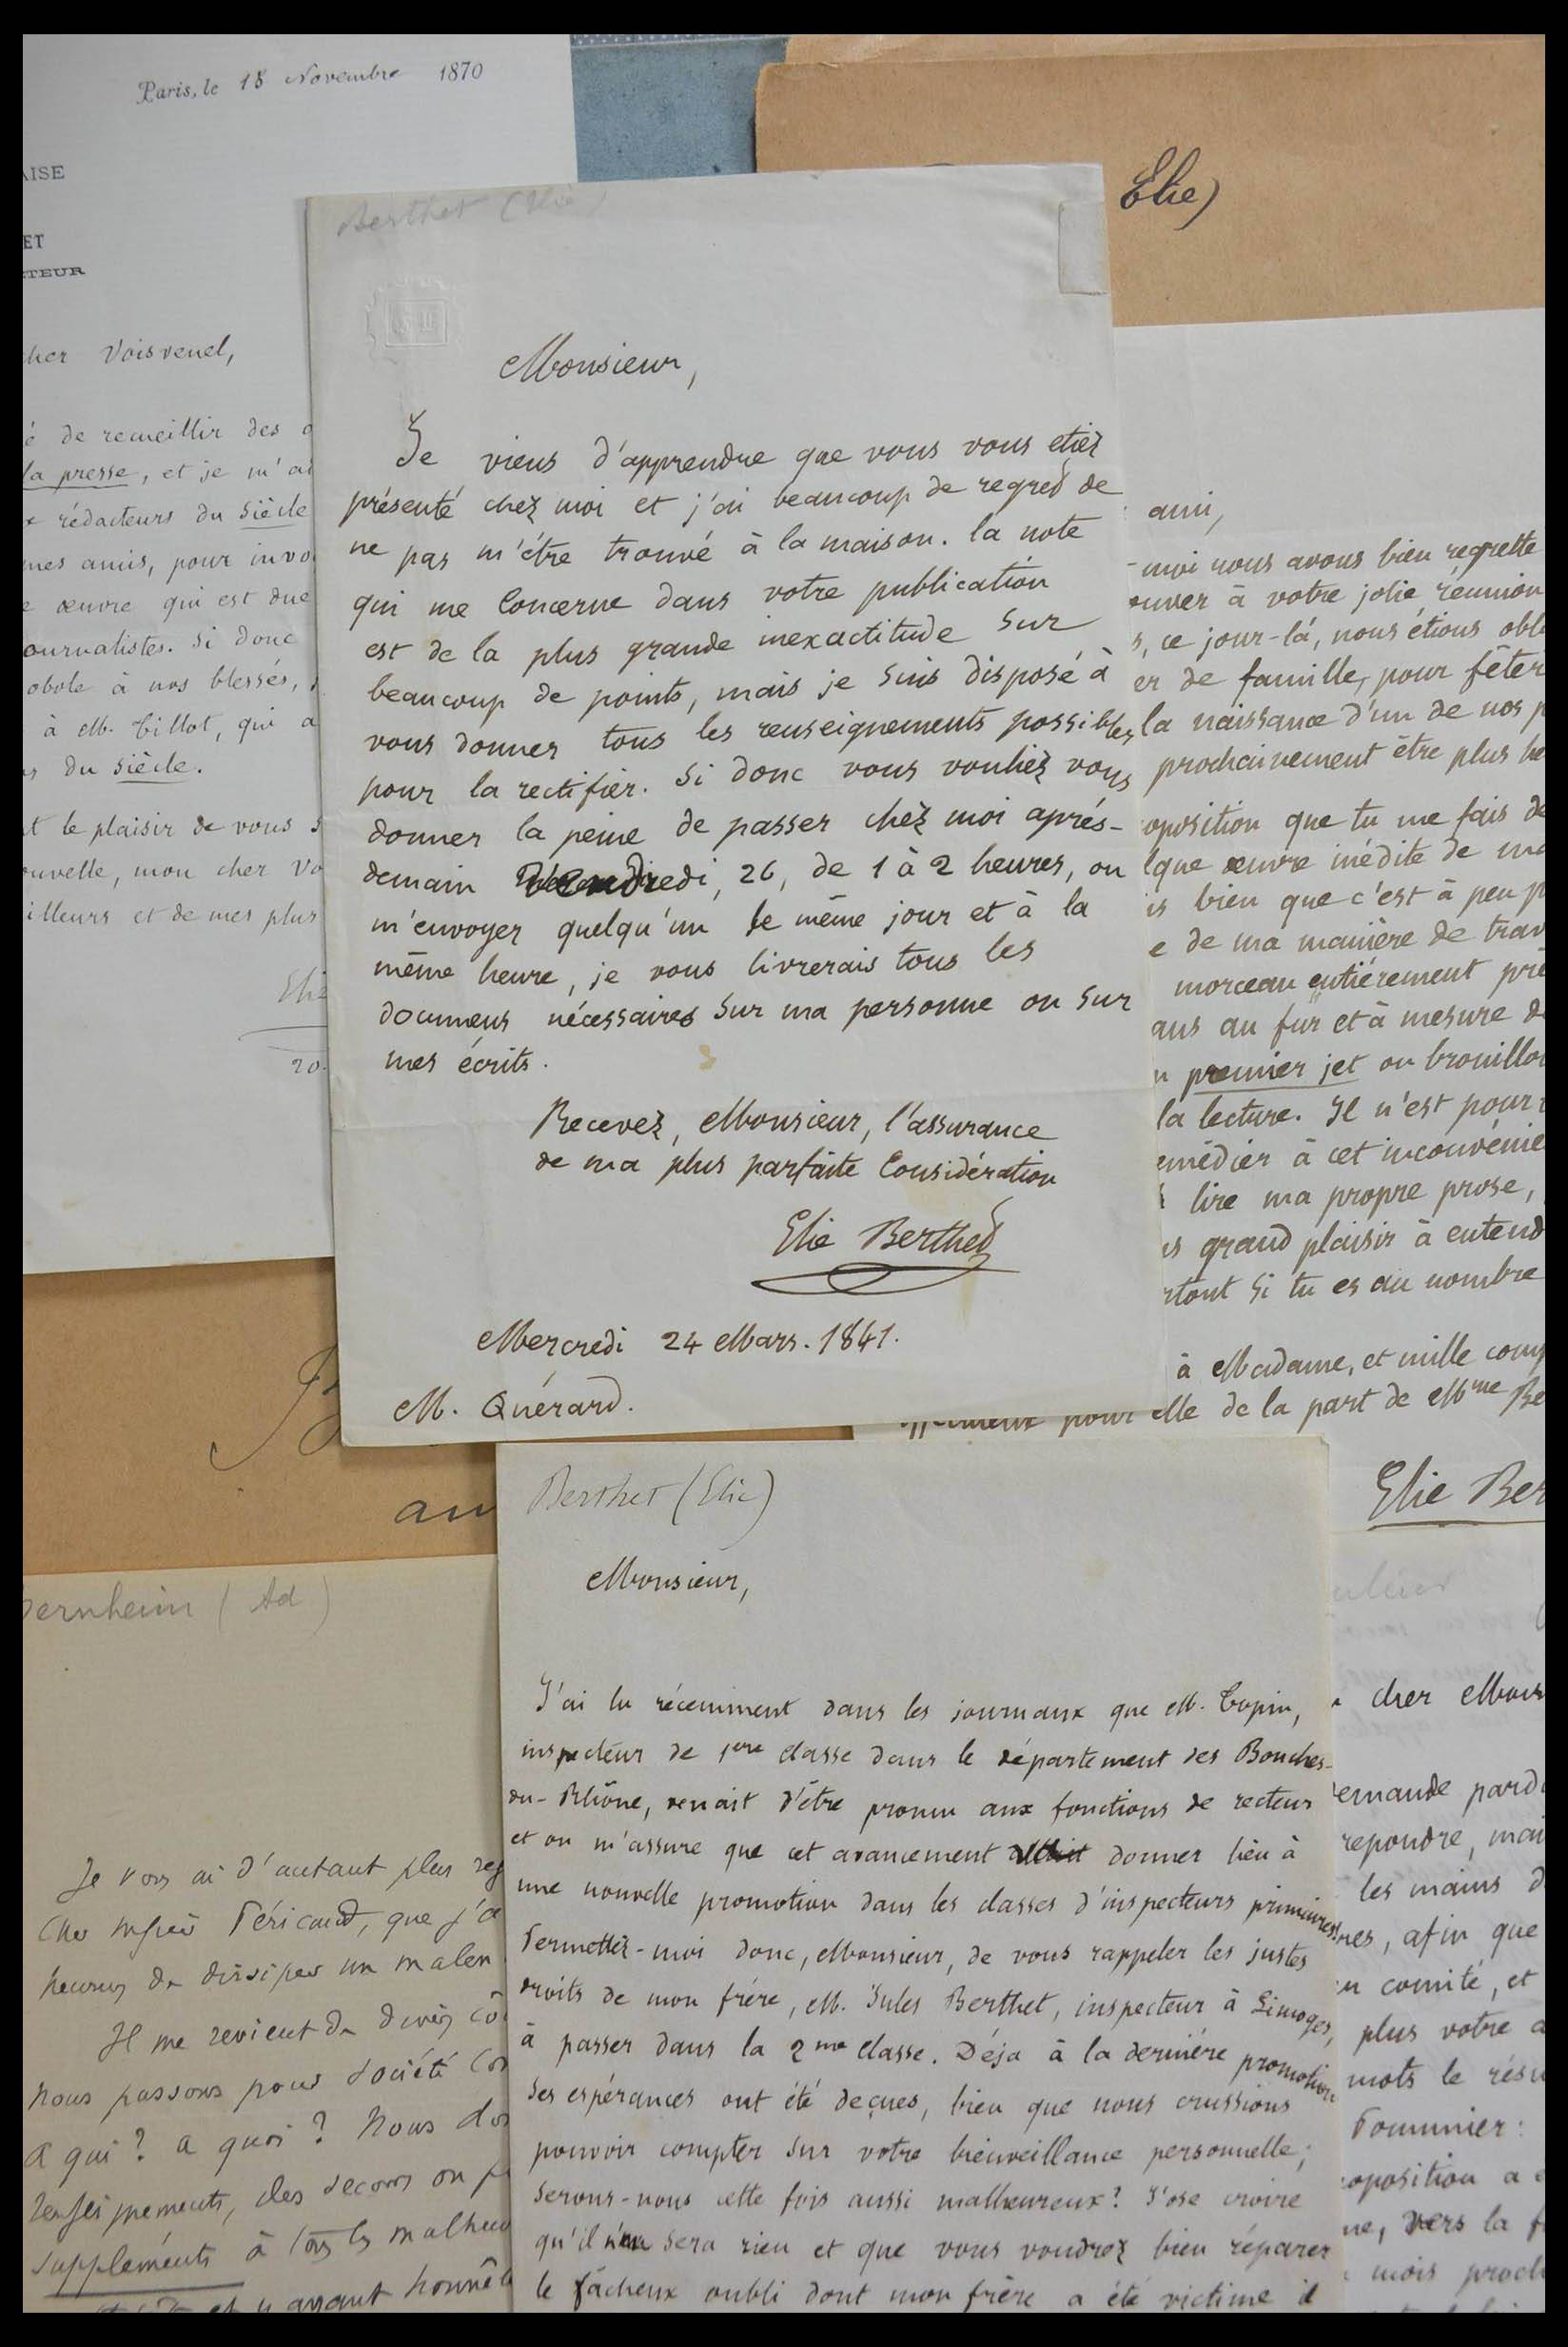 Paris, le 18 Novembre 1870
AISE
ET
CTEUR
cher Voisvenel,
é de recueillir des o
la presse, et je m'ad
x rédacteurs du Siècle
mes amis, pour invo
e œuvre qui est due
ournalistes. Si donc
obole à nos blessés,
à M. Tillot, qui a
rs du Siècle.
nt le plaisir de vous s
ouvelle, mon cher Vo
illeurs et de mes plus
Elie
20.
Elie)
Berthet (Elie)
Monsieur,
Je viens d'apprendre que vous vous etiez
présenté chez moi et j'ai beaucoup de regret de
ne pas m'être trouvé à la maison. la note
qui me Concerne dans votre publication
est de la plus grande inexactitude sur
beaucoup de points, mais je suis disposé à
vous donner tous les renseignements possibles
pour la rectifier. Si donc vous vouliez vous
donner la peine de passer chez moi après-
demain Vendredi, 26, de 1 à 2 heures, ou
m'envoyer quelqu'un le même jour et à la
même heure, je vous livrerais tous les
documens nécessaires sur ma personne ou sur
mes écrits.
Recevez, Monsieur, l'assurance
de ma plus parfaite Considération
Elie Berthet
Mercredi 24 Mars. 1841.
M. Quérard.
ami,
-moi nous avons bien regretté
ouver à votre jolie réunion
s, ce jour-là, nous étions obl
er de famille, pour fêter
la naissance d'un de nos p
prochainement être plus he
oposition que tu me fais de
lque œuvre inédite de ma
is bien que c'est à peu p
e de ma manière de trav
morceau entièrement pré
ans au fur et à mesure d
n premier jet ou brouillon
la lecture. Il n'est pour
emédier à cet inconvénie
lire ma propre prose,
us grand plaisir à entend
rtout si tu es au nombre
à Madame, et mille comp
pour elle de la part de Mme Be
Elie Ber
an
Bernheim (Ad)
Je vous ai d'autant plus reg
Cher Péricaud, que j'a
heureux de dissiper un malen
Il me revient de divers cô
nous passons pour société
à qui? à quoi? Nous do
renseignements, des secours ou
suppléments à tous les malheu
et y ayant honnêt
Berthet (Elie)
Monsieur,
J'ai lu récemment dans les journaux que M. Topin,
inspecteur de 1ere classe dans le département des Bouches-
du-Rhône, venait d'être promu aux fonctions de recteur
et on m'assure que cet avancement donner lieu à
une nouvelle promotion dans les classes d'inspecteurs primaires.
Permettez-moi donc, Monsieur, de vous rappeler les justes
droits de mon frère, M. Jules Berthet, inspecteur à Limoges,
à passer dans la 2me classe. Déja à la dernière promotion
ses espérances ont été deçues, bien que nous crussions
pouvoir compter sur votre bienveillance personnelle;
serons-nous cette fois aussi malheureux? J'ose croire
qu'il n'en sera rien et que vous voudrez bien réparer
le fâcheux oubli dont mon frère a été victime il
cher Mons
demande pardo
repondre, mai
les mains d
res, afin que
en comité, et
plus votre a
mots le résu
Pommier:
roposition a é
ne, vers la f
mois proch